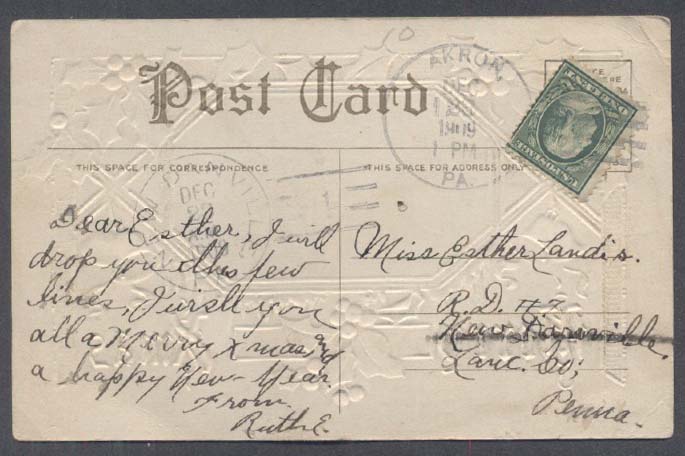 10
Post Card
AKRON,
DEC
23
1909
1 PM
PA.
THIS SPACE FOR CORRESPONDENCE
THIS SPACE FOR ADDRESS ONLY
DEC
Dear Esther, I will
drop you this few
lines, I wish you
all a Merry Xmas, and
a happy New-Year.
From
Ruth E.
Miss Esther Landis.
R.D. #7
New Danville,
Lanc. Co;
Penna.